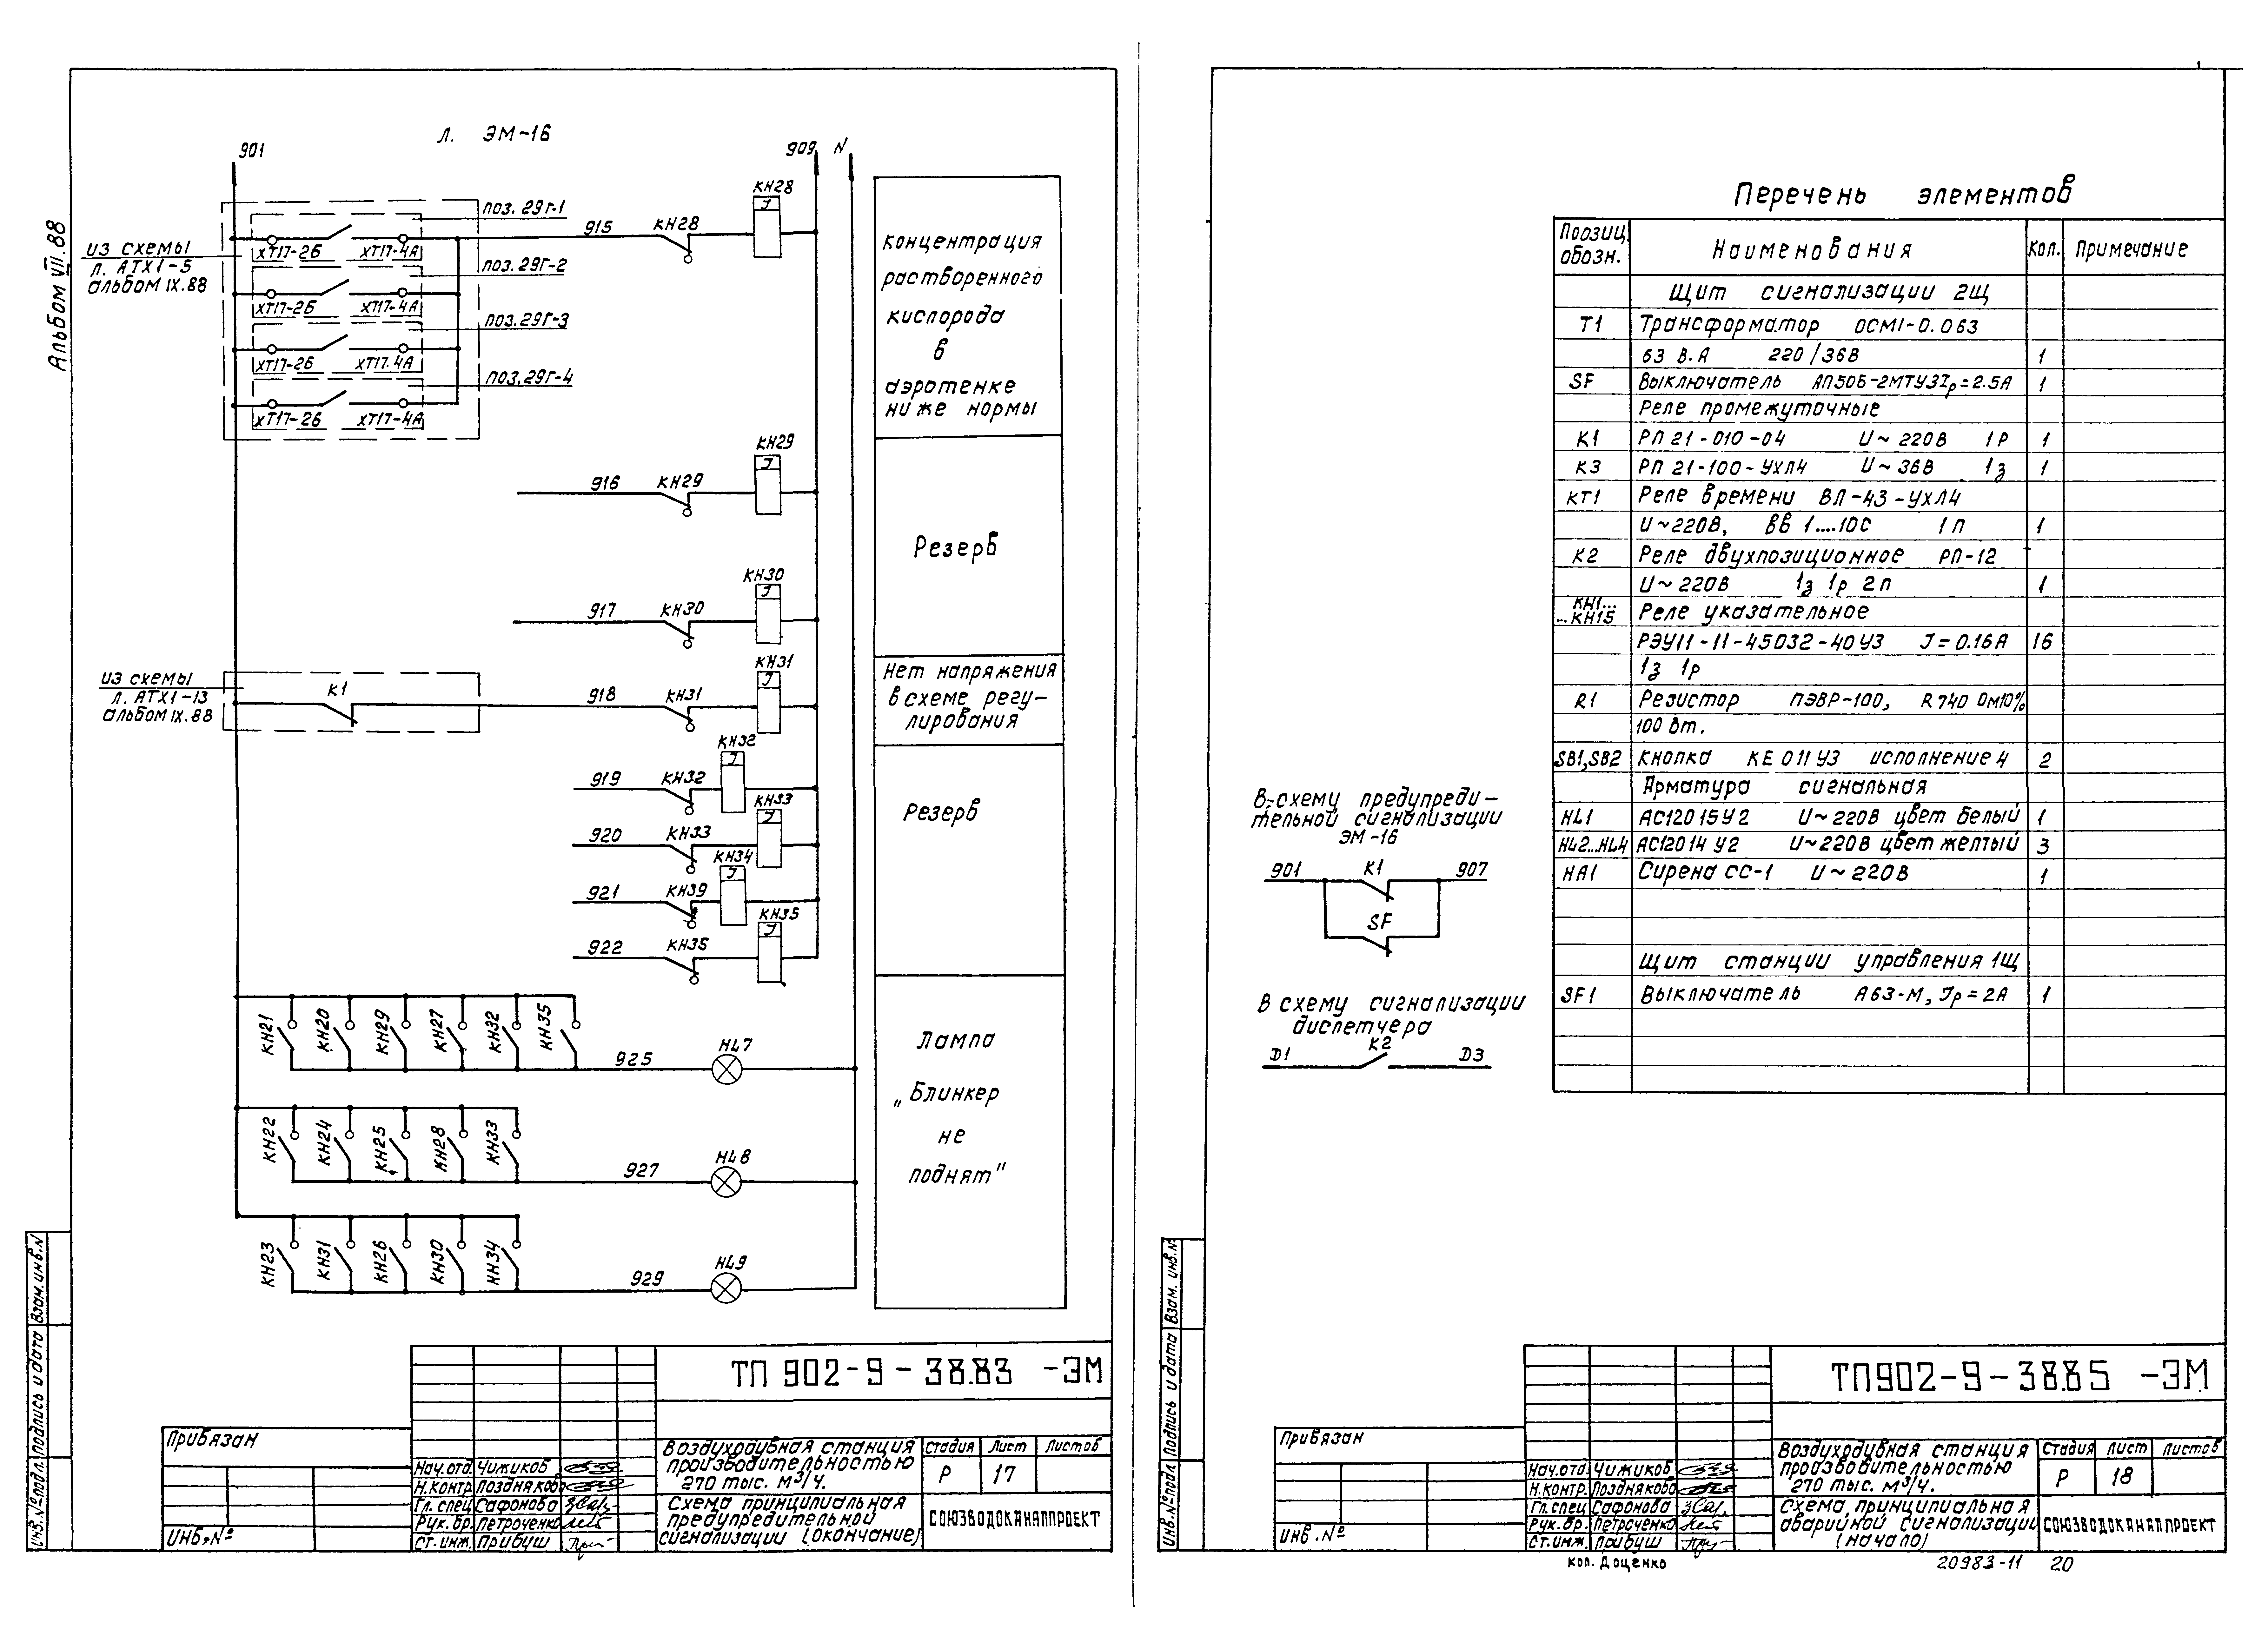 Альбом VII.88
л. ЭМ-16
901
909
N
из схемы
л. АТХ1-5
альбом IX.88
поз. 29г-1
ХТ17-2Б
ХТ17-4А
поз. 29г-2
ХТ17-2Б
ХТ17-4А
поз. 29г-3
ХТ17-2Б
ХТ17-4А
поз. 29г-4
ХТ17-2Б
ХТ17-4А
915
КН28
КН28
J
Концентрация
растворенного
кислорода
в
аэротенке
ниже нормы
916
КН29
КН29
J
Резерв
917
КН30
КН30
J
из схемы
л. АТХ1-13
альбом IX.88
К1
918
КН31
КН31
J
Нет напряжения
в схеме регу-
лирования
919
КН32
КН32
J
920
КН33
КН33
J
921
КН39
КН34
J
922
КН35
КН35
J
Резерв
КН21
КН20
КН29
КН27
КН32
КН35
925
НL7
КН22
КН24
КН25
КН28
КН33
927
НL8
КН23
КН31
КН26
КН30
КН34
929
НL9
Лампа
„Блинкер
не
поднят"
Инв.№ подл. Подпись и дата Взам.инв.№
Привязан
Инв.№
ТП 902-9-38.83 -ЭМ
Нач.отд. Чижиков
Н.контр. Поздняков
Гл. спец Сафонова
Рук. бр. Петроченко
Ст. инж. Прибуш
Воздуходувная станция
производительностью
270 тыс. м³/ч.
Стадия Лист Листов
Р 17
Схема принципиальная
предупредительной
сигнализации (окончание)
СОЮЗВОДОКАНАЛПРОЕКТ
Перечень элементов
Поозиц. обозн. Наименования Кол. Примечание
Щит сигнализации 2Щ
Т1 Трансформатор ОСМ1-0.063
63 В.А 220/36В 1
SF Выключатель АП50Б-2МТУ3 Iр=2.5А 1
Реле промежуточные
К1 РП 21-010-04 U~220В 1Р 1
К3 РП 21-100-УХЛ4 U~36В 1з 1
КТ1 Реле времени ВЛ-43-УХЛ4
U~220В, ВВ 1....10с 1п 1
К2 Реле двухпозиционное РП-12
U~220В 1з 1р 2п 1
КН1...
...КН15 Реле указательное
РЭУ11-11-45032-40У3 J=0.16А 16
1з 1р
R1 Резистор ПЭВР-100, R 740 Ом10%
100 Вт.
SB1,SB2 Кнопка КЕ 011 У3 исполнение 4 2
Арматура сигнальная
HL1 АС12015У2 U~220В цвет белый 1
HL2...HL4 АС12014У2 U~220В цвет желтый 3
НА1 Сирена СС-1 U~220В 1
Щит станции управления 1Щ
SF1 Выключатель А63-М, Jр=2А 1
В схему предупреди-
тельной сигнализации
ЭМ-16
901
К1
907
SF
В схему сигнализации
диспетчера
D1
К2
D3
Инв.№подл Подпись и дата Взам. инв.№
Привязан
Инв.№
ТП902-9-38.85 -ЭМ
Нач.отд. Чижиков
Н.контр. Поздняков
Гл.спец Сафонова
Рук.бр. Петроченко
Ст.инж. Прибуш
Воздуходувная станция
производительностью
270 тыс. м³/ч.
Стадия Лист Листов
Р 18
Схема принципиальная
аварийной сигнализации
(начало)
СОЮЗВОДОКАНАЛПРОЕКТ
коп. Доценко
20983-11 20